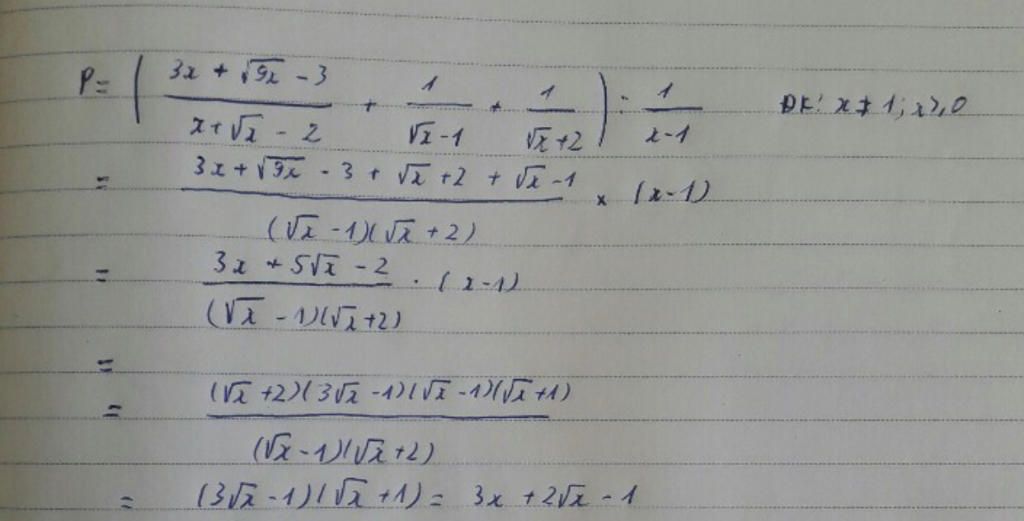 P = ( (3x + √9x - 3)/(x + √x - 2) + 1/(√x - 1) + 1/(√x + 2) ) : 1/(x - 1) ĐK: x ≠ 1; x ≥ 0
= (3x + √9x - 3 + √x + 2 + √x - 1)/((√x - 1)(√x + 2)) × (x - 1)
= (3x + 5√x - 2)/((√x - 1)(√x + 2)) . (x - 1)
=
= ((√x + 2)(3√x - 1)(√x - 1)(√x + 1))/((√x - 1)(√x + 2))
= (3√x - 1)(√x + 1) = 3x + 2√x - 1